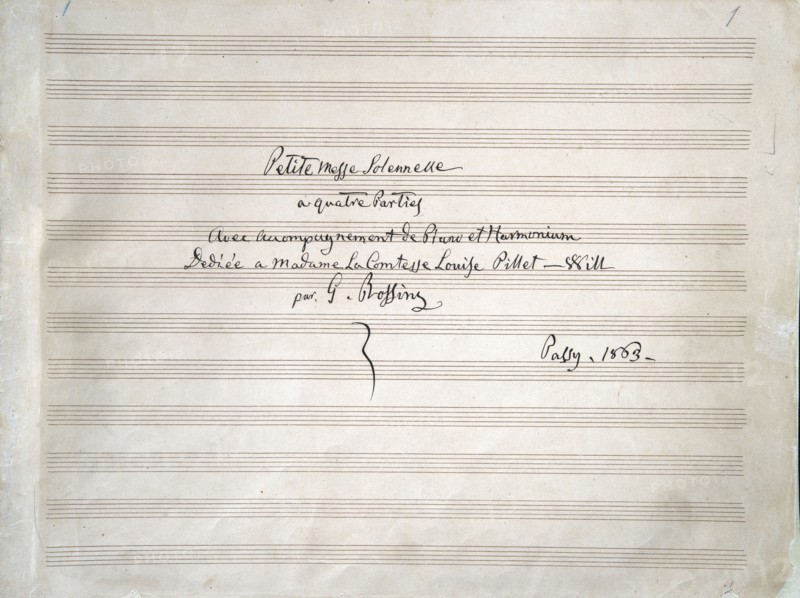 1
Petite Messe Solennelle
a quatre Parties
Avec accompagnement de Piano et Harmonium
Dediée a Madame La Comtesse Louise Pillet-Will
par. G. Rossini
Passy. 1863-